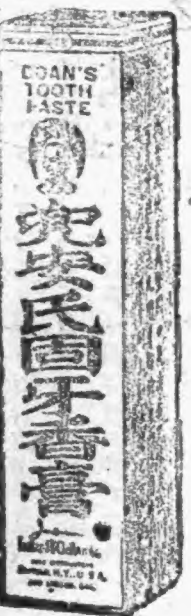 DOAN'S
TOOTH
PASTE
兜安氏固牙香膏
N.Y., U.S.A.